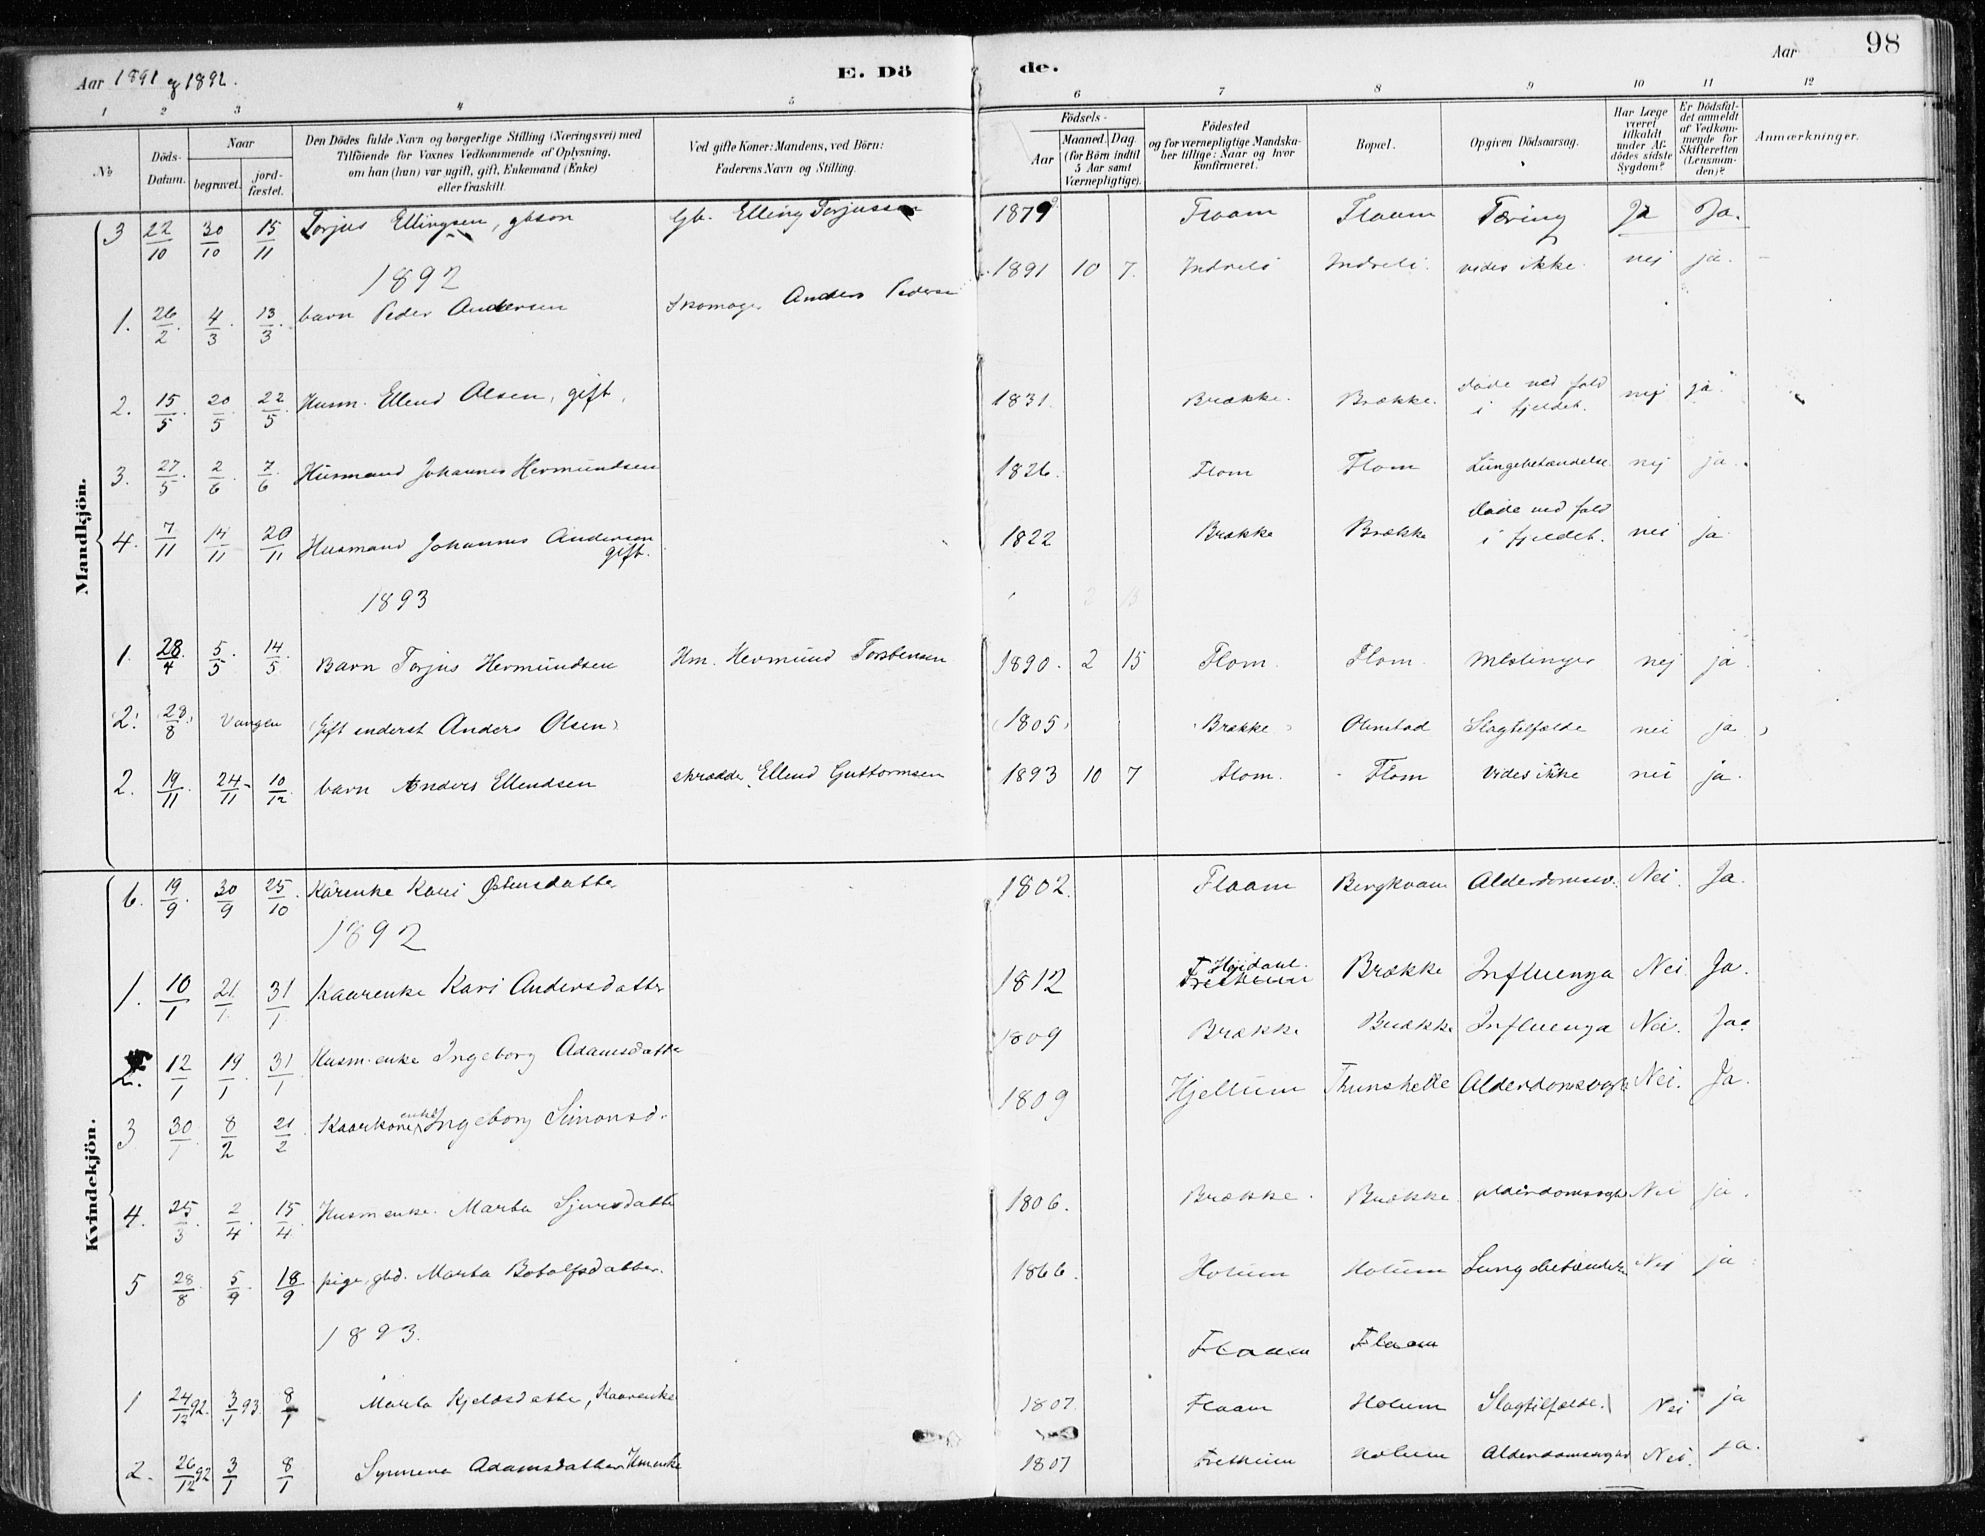 98
Aar 1891 og 1892.
E. Dö
de.
Aar
1 2 3 4 5 6 7 8 9 10 11 12
No
Döds-Datum.
Naar
begravet.
jord-fæstet.
Den Dödes fulde Navn og borgerlige Stilling (Næringsvei) med
Tilföiende for Voxnes Vedkommende af Oplysning,
om han (hun) var ugift, gift, Enkemand (Enke)
eller fraskilt.
Ved gifte Koner: Mandens, ved Börn:
Faderens Navn og Stilling.
Födsels-
Aar
Maaned. Dag.
(for Börn indtil
5 Aar samt
Værnepligtige).
Födested
og for værnepligtige Mandska-
ber tillige: Naar og hvor
konfirmeret.
Bopæl.
Opgiven Dödsaarsag.
Har Læge
været
tilkaldt
under Af-
dödes sidste
Sygdom?
Er Dödsfal-
det anmeldt
af Vedkom-
mende for
Skifteretten
(Lensman-
den)?
Anmærkninger.
Mandkjön.
3 22/10 30/10 15/11 Torjus Ellingsen, gbson Gb. Elling Torjussen 1879 Flaam Flaam Tæring Ja Ja.
1892
1. 26/2 4/3 13/3 barn Peder Andersen Skomager Anders Pedersen 1891 10 7. Indreli Indreli vides ikke nej ja.
2. 15/5 20/5 22/5 Husm. Ellend Olsen, gift, 1831. Brække. Brække. døde ved fald
i fjeldet. nej ja
3. 27/5 2/6 7/6 Husmand Johannes Hermundsen 1826. Flom Flom Lungebetændelse nej ja.
4. 7/11 14/11 20/11 Husmand Johannes Andersen
gift. 1822 Brække Brække døde ved fald
i fjeldet. nei ja
1893
1. 28/4 5/5 14/5 Barn Torjus Hermundsen Hm. Hermund Torstensen 1890. 2 15 Flom. Flom. Meslinger nej ja
2. 28/8 Vangen (Gift inderst Anders Olsen) (1805) Brække Slagtilfælde nei ja
2. 19/11 24/11 10/12 barn Anders Ellendsen skrædder Ellend Guttormsen 1893 10 7 Flom. Flom Vides ikke nei ja.
Kvindekjön.
6. 19/9 30/9 25/10 Kårenke Kari Østensdatter 1802. Flaam Bergkvam Alderdomssv. Nei. Ja.
1892
1. 10/1 21/1 31/1 Kaarenke Kari Andersdatter 1812 Fretheim Brække Influenza Nei Ja.
2. 12/1 19/1 31/1 Husm.enke Ingeborg Adamsdatter 1809 Brække Brække Influenza Nei. Ja.
3 30/1 8/2 21/2 Kaarkone enke Ingeborg Simonsd. 1809 Hjellum Alderdomssvagh. Nei. Ja.
4. 25/3 2/4 15/4 Husmenke. Marta Sjursdatter 1806. Brække. Brække. alderdomssvagh. Nei ja.
5 28/8 5/9 18/9 pige, gbd. Marta Botolfsdatter. 1866. Holum Holum Lungebetændelse Nei ja
1893.
Flaam Flaam
1 24/12 92. 3/1 93. 8/1 Marta Kjeldsdatter, Kaarenke 1807. Flaam Holum Slagtilfælde. Nei ja
2. 26/12 92 3/1 8/1 Synneva Adamsdatter Hmenke 1807 Fretheim Holum Alderdomssvagh. Nei. ja.